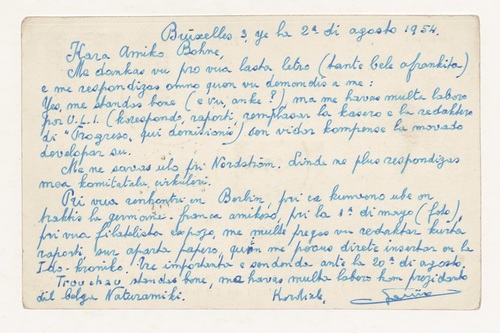 Bruxelles 3, ye la 2a di agosto 1954.
Kara Amiko Bohne,
Me dankas vu pro vua lasta letro (tante bele afrankita)
e me respondizas omno quon vu demandis a me:
Yes, me standas bone (e vu, anke?), ma me havas multa laboro
por U.L.I. (korespondo, raporti, remplasar la kasero e la redaktero
di "Progreso", qui demisionis) sen vidar kompense la movado
developar su.
Me ne savas ulo pri Nordström. Linde ne plus respondizas
mea komitatala cirkuleri.
Pri vua renkontri en Berlin, pri ca kunveno ube on
traktis la germana-franca amikeso, pri la 1a di mayo (foto),
pri vua filatelista expozo, me multe pregas vu redaktar kurta
raporti, sur aparta papero, quin me povus direte insertar en la
Ido-kroniko. Tre importanta e sendenda ante la 20a di agosto.
standas bone, ma havas multa laboro kom prezidanto
dil belga Naturamiki. Kordiale,